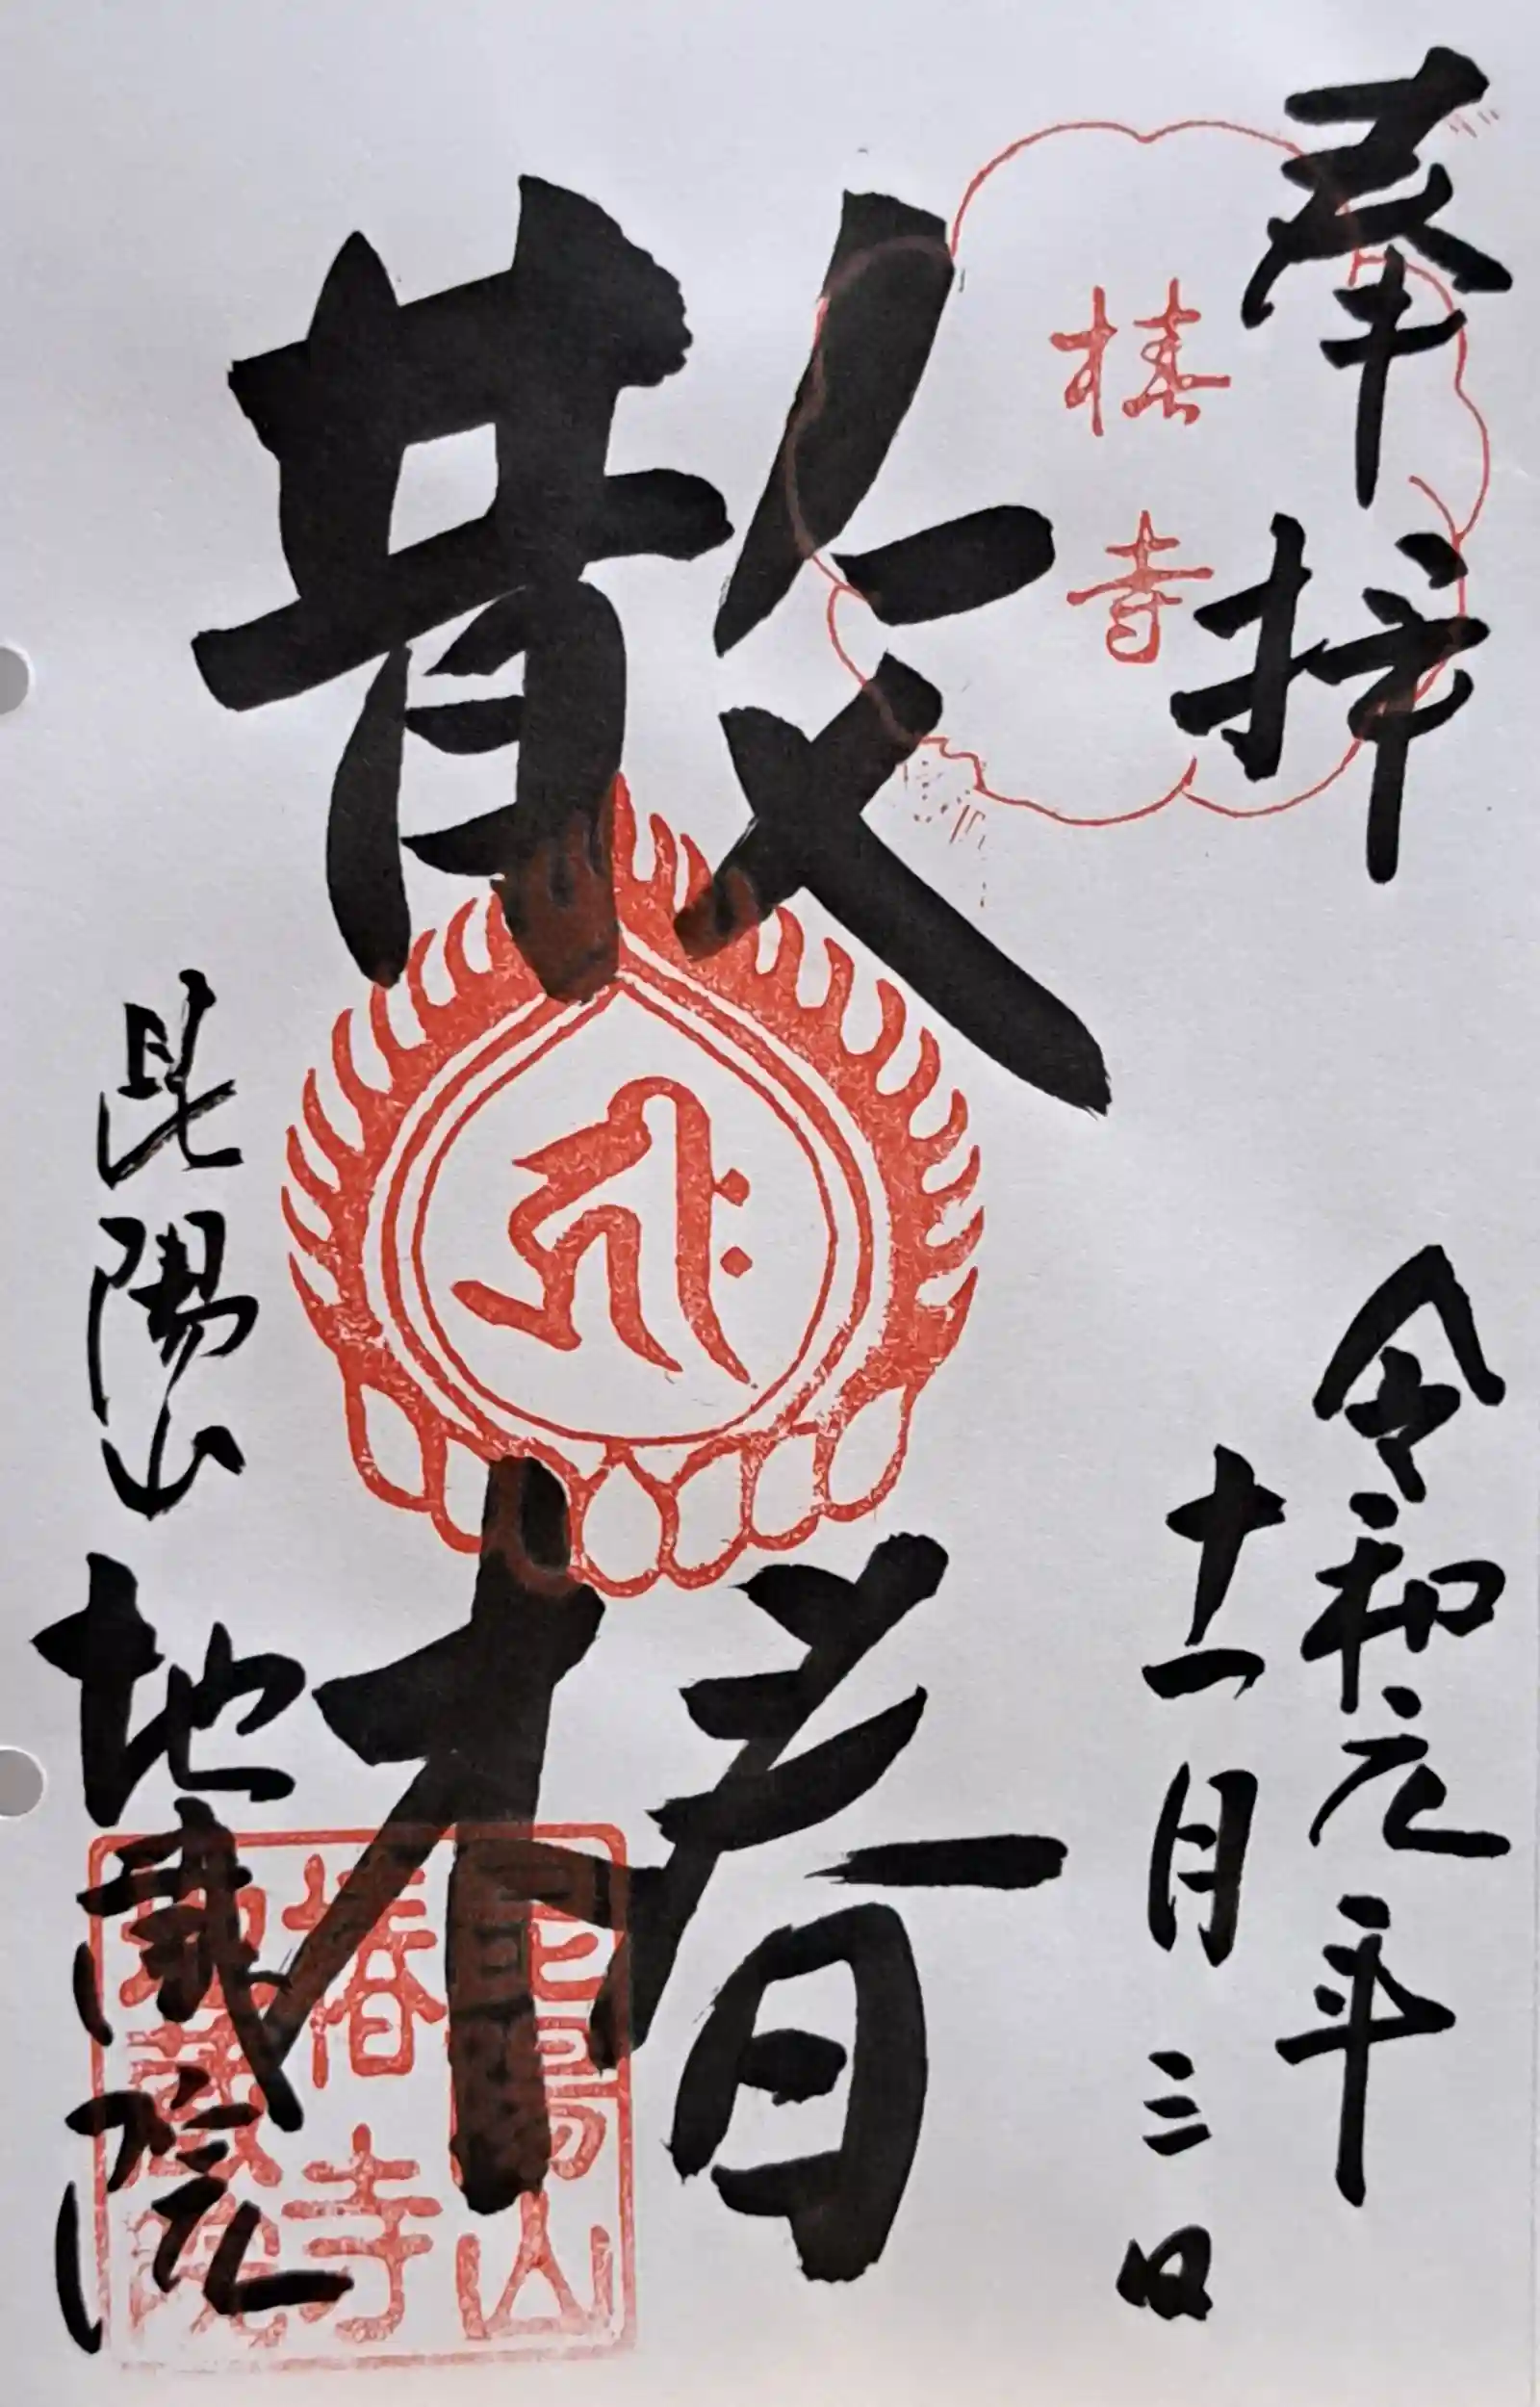 奉拝
令和元年
十一月三日
椿
寺
散椿
𑖮𑖿𑖨𑖱𑖾
昆陽山
地蔵院
昆陽山
椿寺
地蔵院